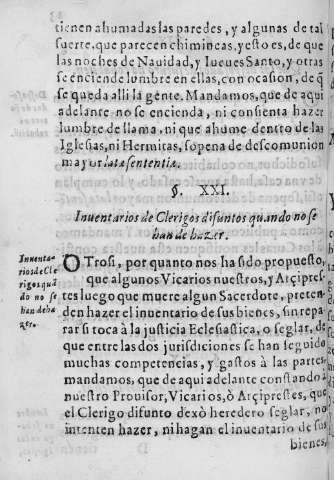 tienen ahumadas las paredes, y algunas de tal
suerte, que parecen chimineas, y esto es, de que
las noches de Nauidad, y Iueues Santo, y otras
se enciende lumbre en ellas, con ocasion, de q̃
se queda alli la gente. Mandamos, que de aqui
adelante no se encienda, ni consienta hazer
lumbre de llama, ni que ahume dentro de las
Iglesias, ni Hermitas, so pena de descomunion
mayor latæ sententiæ.
§. XXI.
Inuentarios de Clerigos difuntos quando no se
han de hazer.
Inuenta-
rios de Cle
rigos, quã
do no se
han de ha
zer.
OTrosi, por quanto nos ha sido propuesto,
que algunos Vicarios nuestros, y Arçipres-
tes luego que muere algun Sacerdote, preten-
den hazer el inuentario de sus bienes, sin repa-
rar si toca à la justicia Eclesiastica, o seglar, de
que entre las dos jurisdiciones se han seguido
muchas competencias, y gastos à las partes,
mandamos, que de aqui adelante constando à
nuestro Prouisor, Vicarios, ò Arçiprestes, que
el Clerigo difunto dexò heredero seglar, no
intenten hazer, ni hagan el inuentario de sus
bienes,